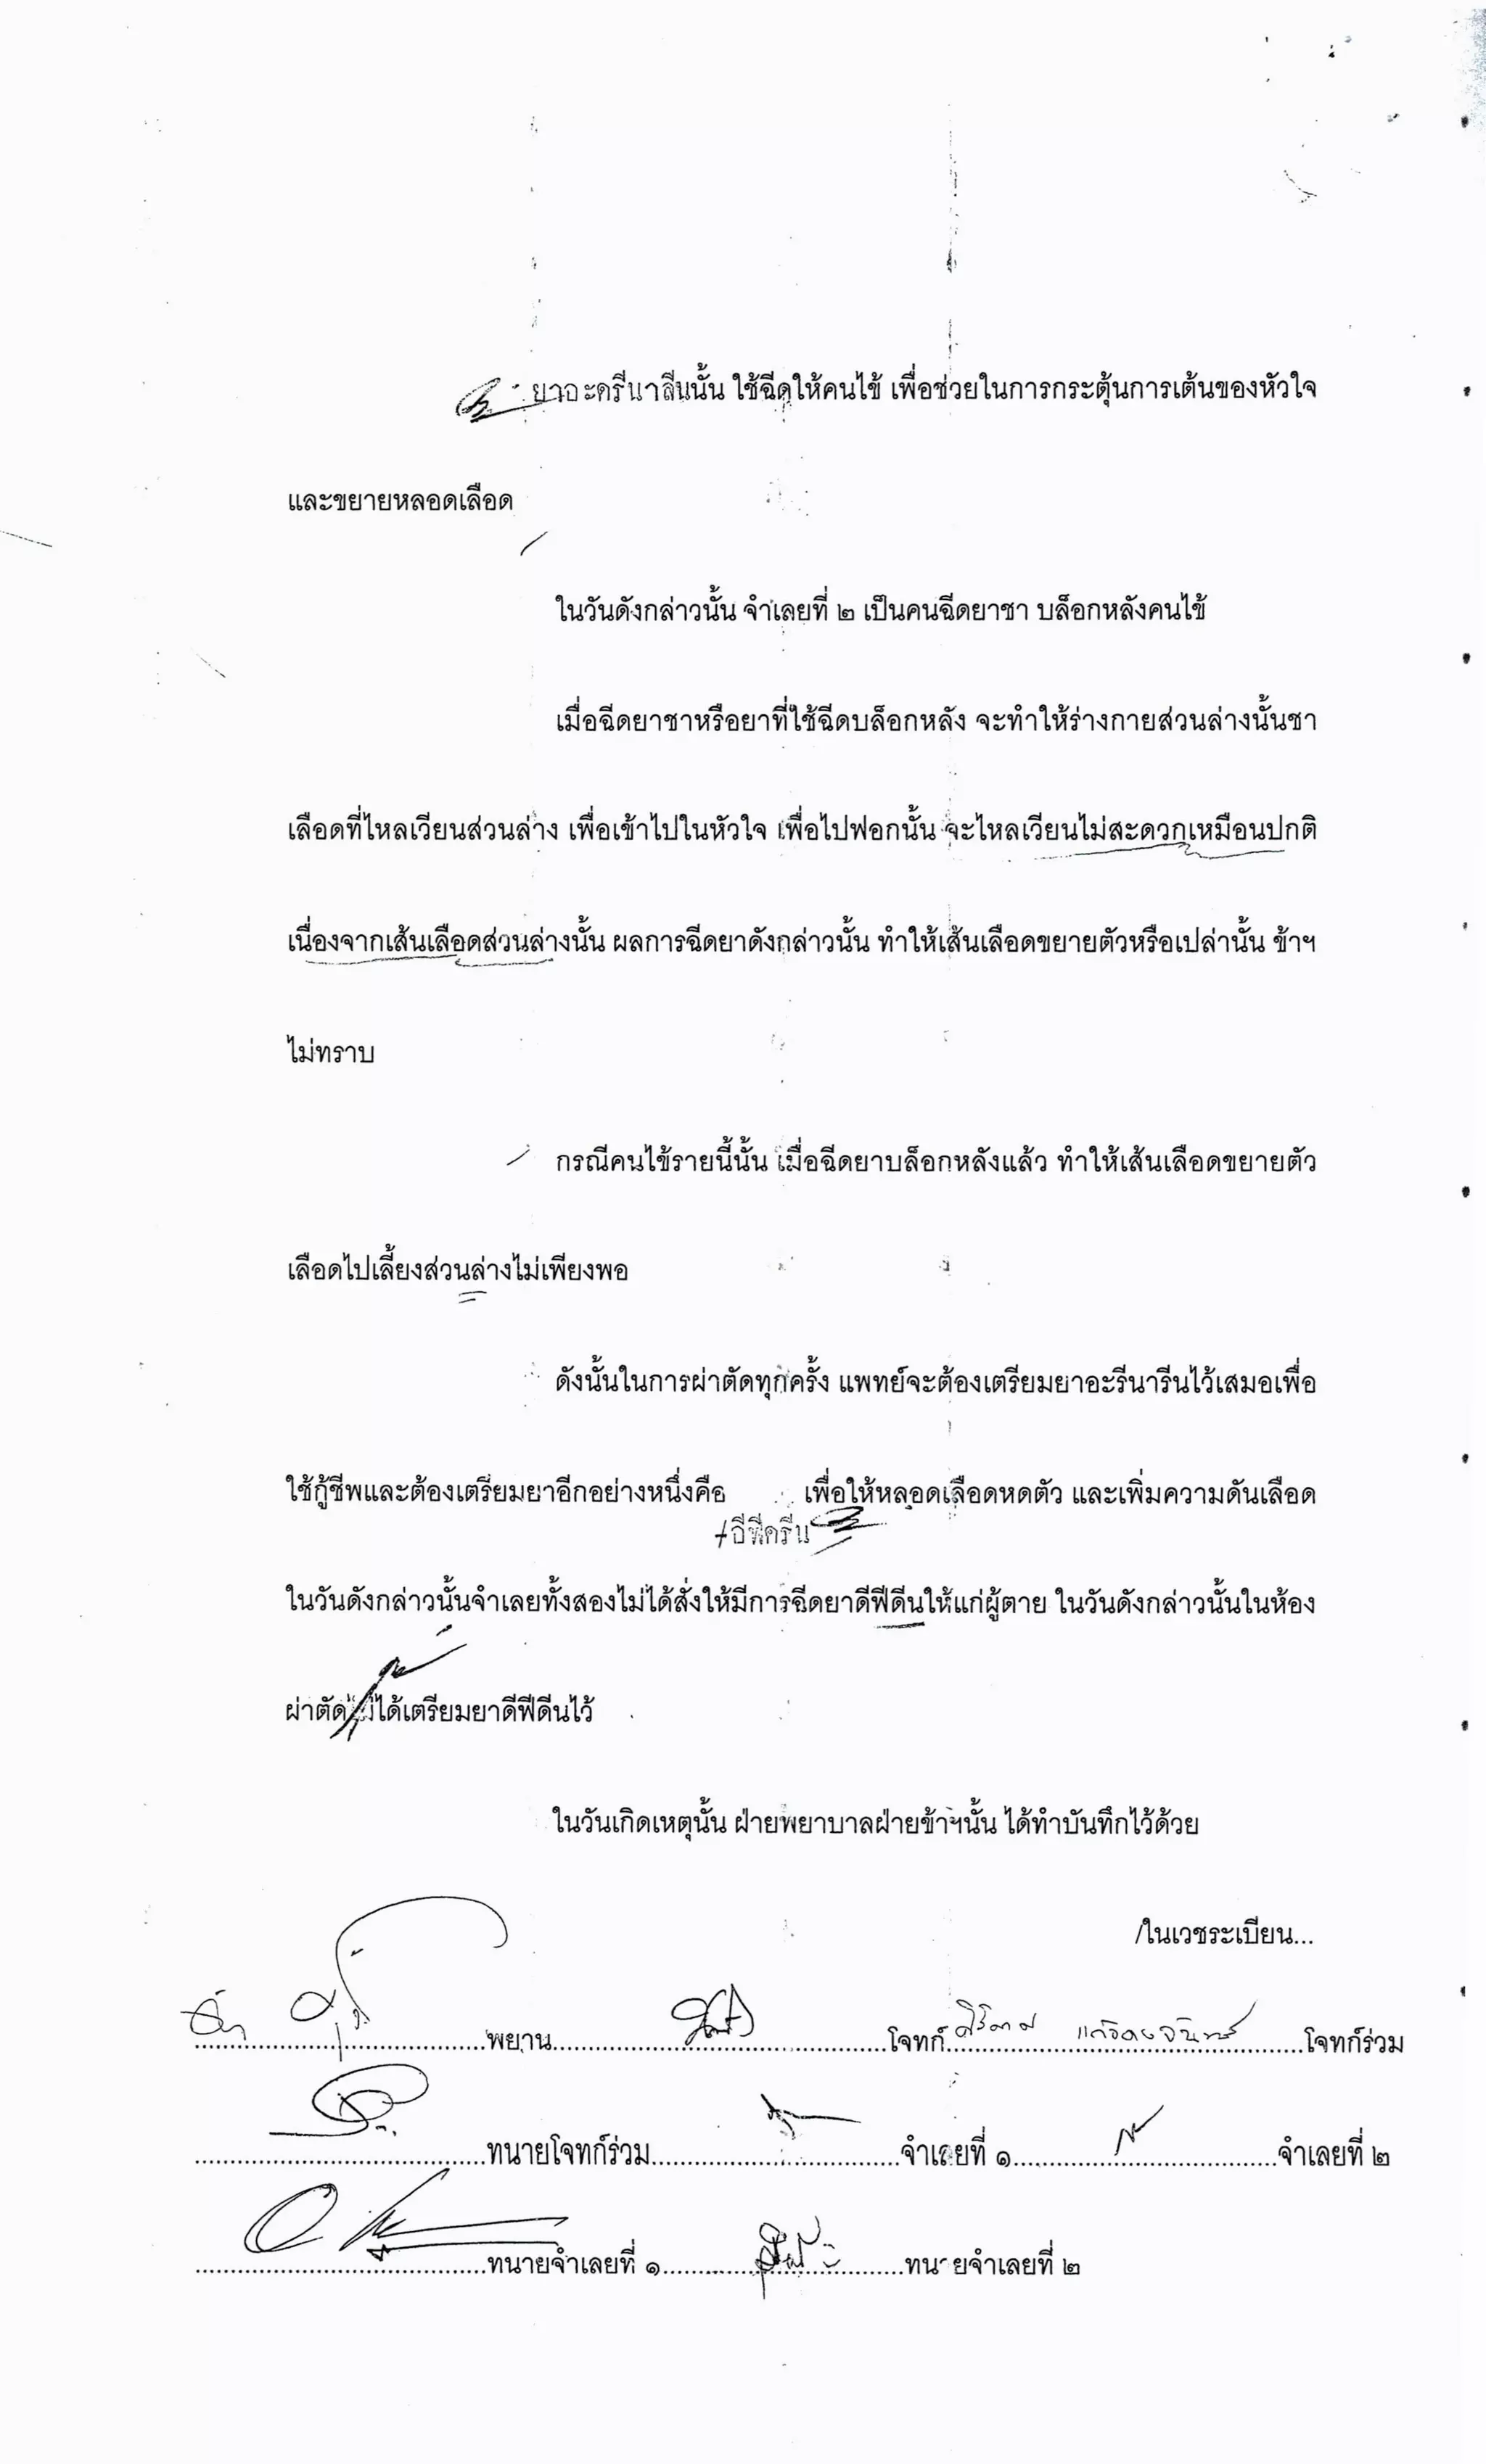 ยาอะดรีนาลีนนั้น ใช้ฉีดให้คนไข้ เพื่อช่วยในการกระตุ้นการเต้นของหัวใจ
และขยายหลอดเลือด
ในวันดังกล่าวนั้น จำเลยที่ ๒ เป็นคนฉีดยาชา บล็อกหลังคนไข้
เมื่อฉีดยาชาหรือยาที่ใช้ฉีดบล็อกหลัง จะทำให้ร่างกายส่วนล่างนั้นชา
เลือดที่ไหลเวียนส่วนล่าง เพื่อเข้าไปในหัวใจ เพื่อไปฟอกนั้น จะไหลเวียนไม่สะดวกเหมือนปกติ
เนื่องจากเส้นเลือดส่วนล่างนั้น ผลการฉีดยาดังกล่าวนั้น ทำให้เส้นเลือดขยายตัวหรือเปล่านั้น ข้าฯ
ไม่ทราบ
กรณีคนไข้รายนี้นั้น เมื่อฉีดยาบล็อกหลังแล้ว ทำให้เส้นเลือดขยายตัว
เลือดไปเลี้ยงส่วนล่างไม่เพียงพอ
ดังนั้นในการผ่าตัดทุกครั้ง แพทย์จะต้องเตรียมยาอะรีนารีนไว้เสมอเพื่อ
ใช้กู้ชีพและต้องเตรียมยาอีกอย่างหนึ่งคือ เพื่อให้หลอดเลือดหดตัว และเพิ่มความดันเลือด
อีฟีดรีน
ในวันดังกล่าวนั้นจำเลยทั้งสองไม่ได้สั่งให้มีการฉีดยาดีฟีดีนให้แก่ผู้ตาย ในวันดังกล่าวนั้นในห้อง
ผ่าตัดได้เตรียมยาดีฟีดีนไว้
ในวันเกิดเหตุนั้น ฝ่ายพยาบาลฝ่ายข้าฯนั้น ได้ทำบันทึกไว้ด้วย
/ในเวชระเบียน...
พยาน โจทก์ โจทก์ร่วม
ทนายโจทก์ร่วม จำเลยที่ ๑ จำเลยที่ ๒
ทนายจำเลยที่ ๑ ทนายจำเลยที่ ๒